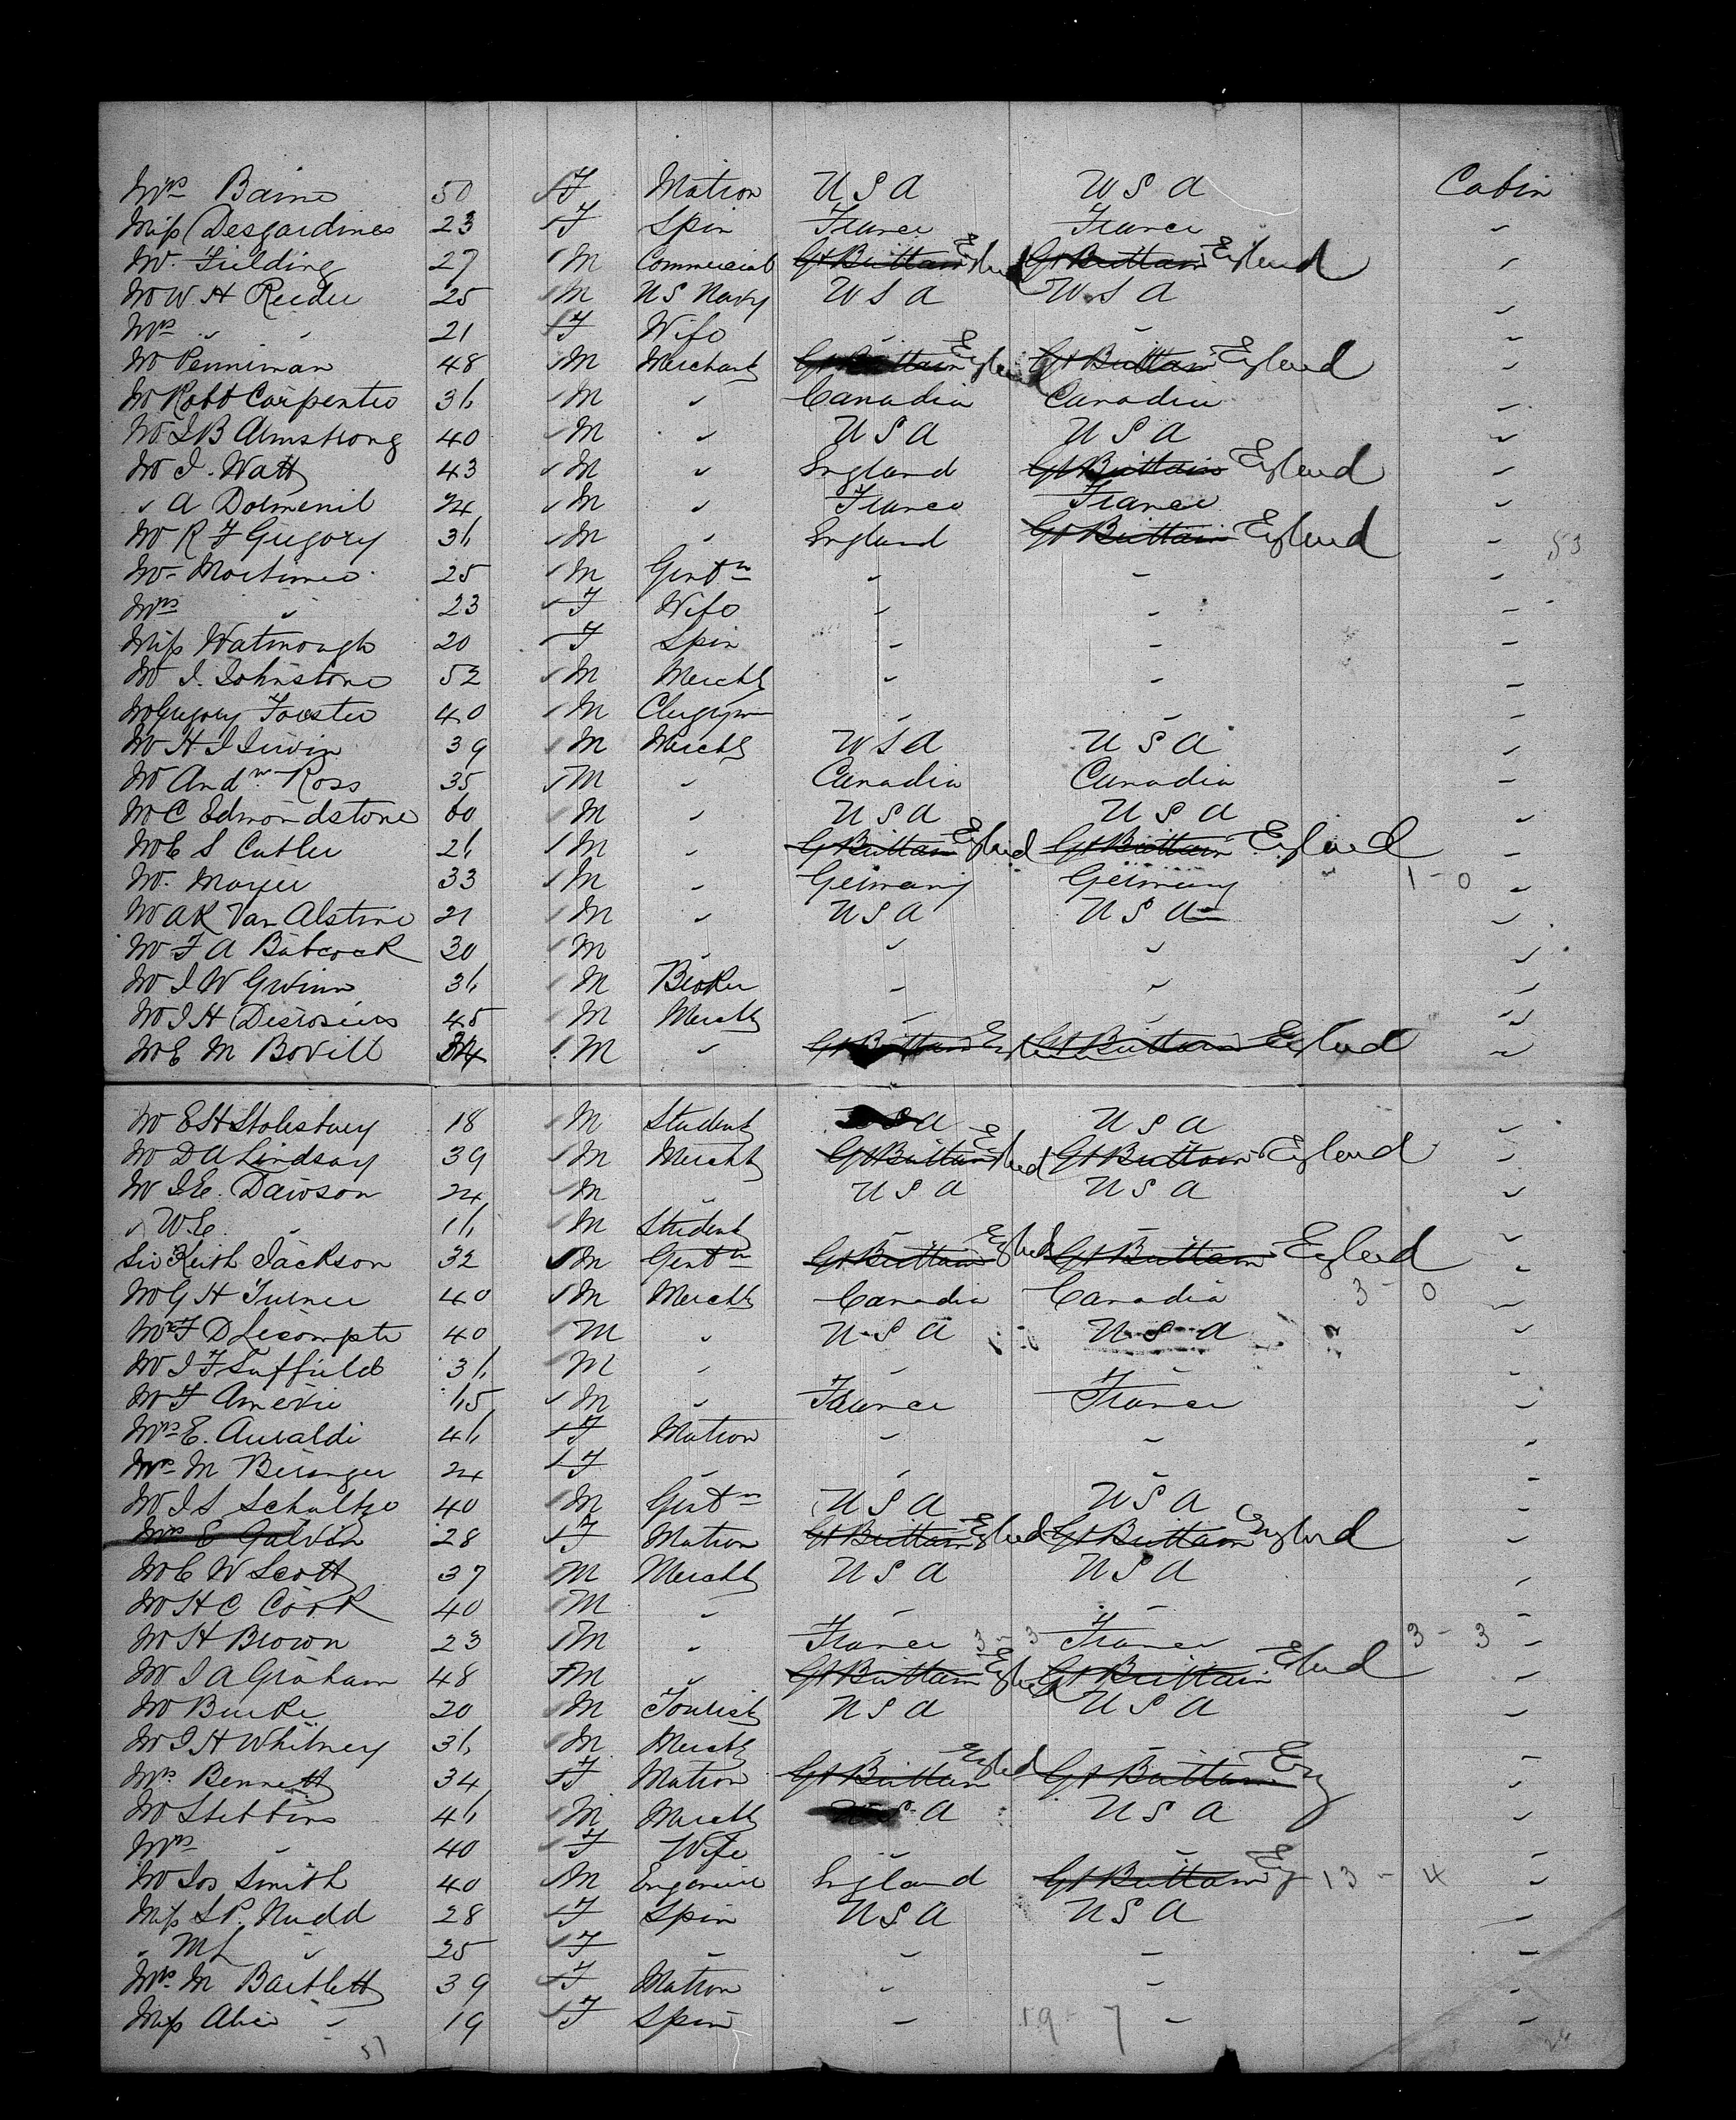 Mrs Baine 50 F Matron U S A U S A Cabin
Miss Desjardines 23 F Spin France France "
Mr. Fielding 27 M Commercial Gt Brittain England Gt Brittain England "
Mr W H Reeder 25 M U S Navy U S A U S A "
Mrs " " 21 F Wife " " "
Mr Penniman 48 M Merchant Gt Brittain England Gt Brittain England "
Mr Robt Carpenter 36 M " Canadia Canadia "
Mr I B Armstrong 40 M " U S A U S A "
Mr I. Watt 43 M " England Gt Brittain England "
" A Dolmenil 24 M " France France "
Mr R F Gregory 36 M " England Gt Brittain England " 53
Mr Mortimer 25 M Gentn " " "
Mrs " 23 F Wife " " "
Miss Watmough 20 F Spin " " "
Mr I. Johnstone 52 M Mercht " " "
Mr Gregory Forester 40 M Clergym " " "
Mr H I Irwin 39 M Mercht U S A U S A "
Mr Andw Ross 35 M " Canadia Canadia "
Mr C Edmondstone 60 M " U S A U S A "
Mr C S Cutler 26 M " Gt Brittain England Gt Brittain England "
Mr. Mayer 33 M " Germany Germany 1 - 0 "
Mr A R Van Alstine 21 M " U S A U S A "
Mr F A Babcock 30 M " " " "
Mr I W Gwinn 36 M Broker " " "
Mr I H Desrosiers 45 M Mercht " " "
Mr E M Bovill 34 M " Gt Brittain Gt Brittain England "
Mr E H Stolesbury 18 M Student U S A U S A "
Mr D A Lindsay 39 M Mercht Gt Brittain England Gt Brittain England "
Mr I E. Dawson 24 M " U S A U S A "
" W E. " 16 M Student " " "
Sir Keith Jackson 32 M Gentn Gt Brittain England Gt Brittain England "
Mr G H Turner 40 M Mercht Canadia Canadia 3 - 0 "
Mr F D Lecompte 40 M " U S A U S A "
Mr I F Suffield 36 M " " " "
Mr F Amerie 45 M " France France "
Mrs E. Auraldi 46 F Matron " " "
Mrs M Beranger 24 F " " " "
Mr I S Schultze 40 M Gentn U S A U S A "
Mrs E Galvin 28 F Matron Gt Brittain England Gt Brittain England "
Mr C W Scott 37 M Mercht U S A U S A "
Mr H C Cook 40 M " " " "
Mr H Brown 23 M " France 3 - 3 France 3 - 3 "
Mr I A Graham 48 M " Gt Brittain England Gt Brittain England "
Mr Burke 20 M Tourist U S A U S A "
Mr I H Whitney 36 M Mercht " " "
Mrs. Bennett 34 F Matron Gt Brittain England Gt Brittain Eng "
Mr Stebbins 46 M Mercht U S A U S A "
Mrs " 40 F Wife " " "
Mr Jos Smith 40 M Engineer England Gt Brittain Eng 13 - 4 "
Miss S P. Nudd 28 F Spin U S A U S A "
" M L " 25 F " " " "
Mrs. M Bartlett 39 F Matron " " "
Miss Alice " 19 F Spin " 19 - 7 " "
51